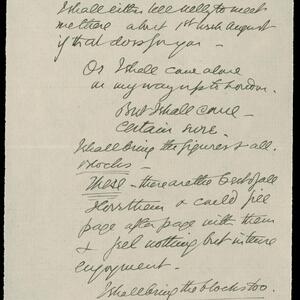 I shall either tell Nelly to meet
me there about 1st week August
if that does for you -
Or I shall come alone
on my way up to London.
But I shall come -
certain sure.
I shall bring the figures & all
blocks -
These - there are the best of all
I love them & could fill
page after page with them
& feel nothing but intense
enjoyment -
I shall bring the blocks too.